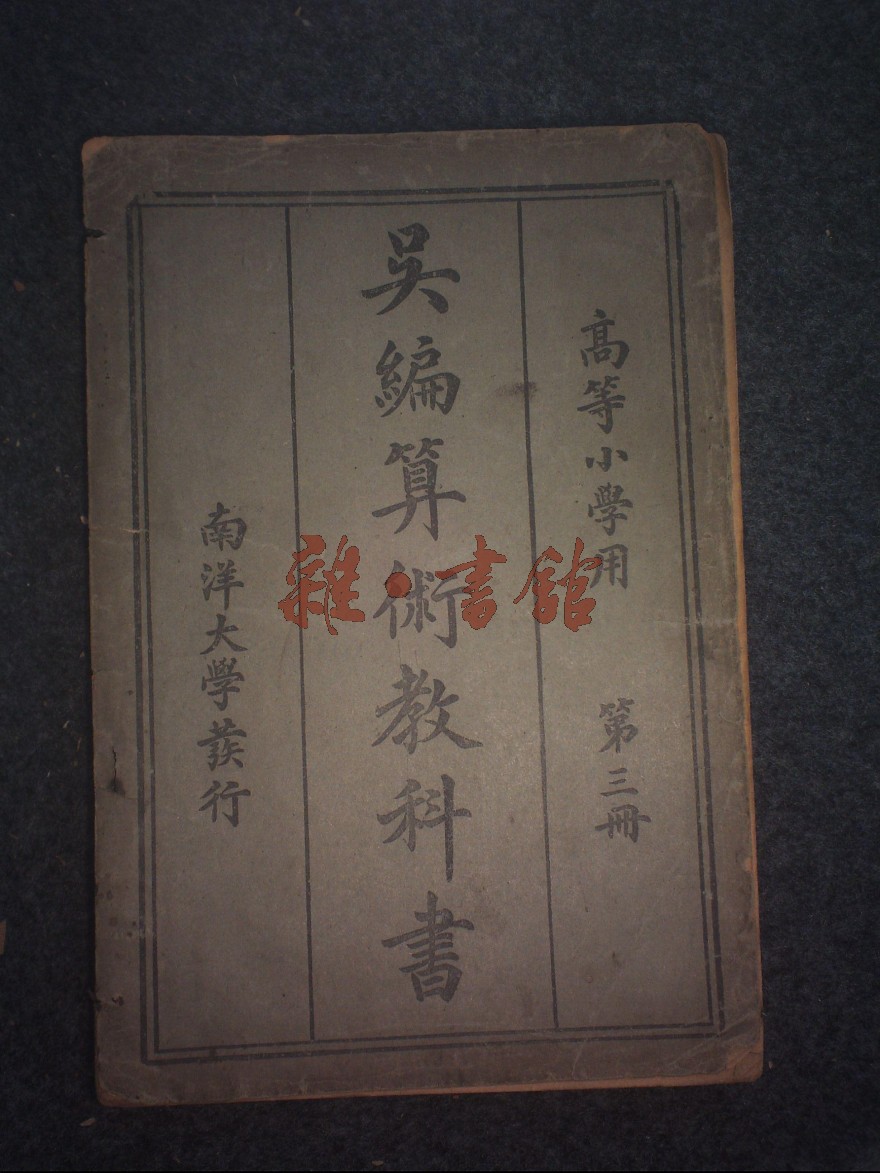 高等小學用 第三冊
吳編算術教科書
南洋大學發行
雜·書館